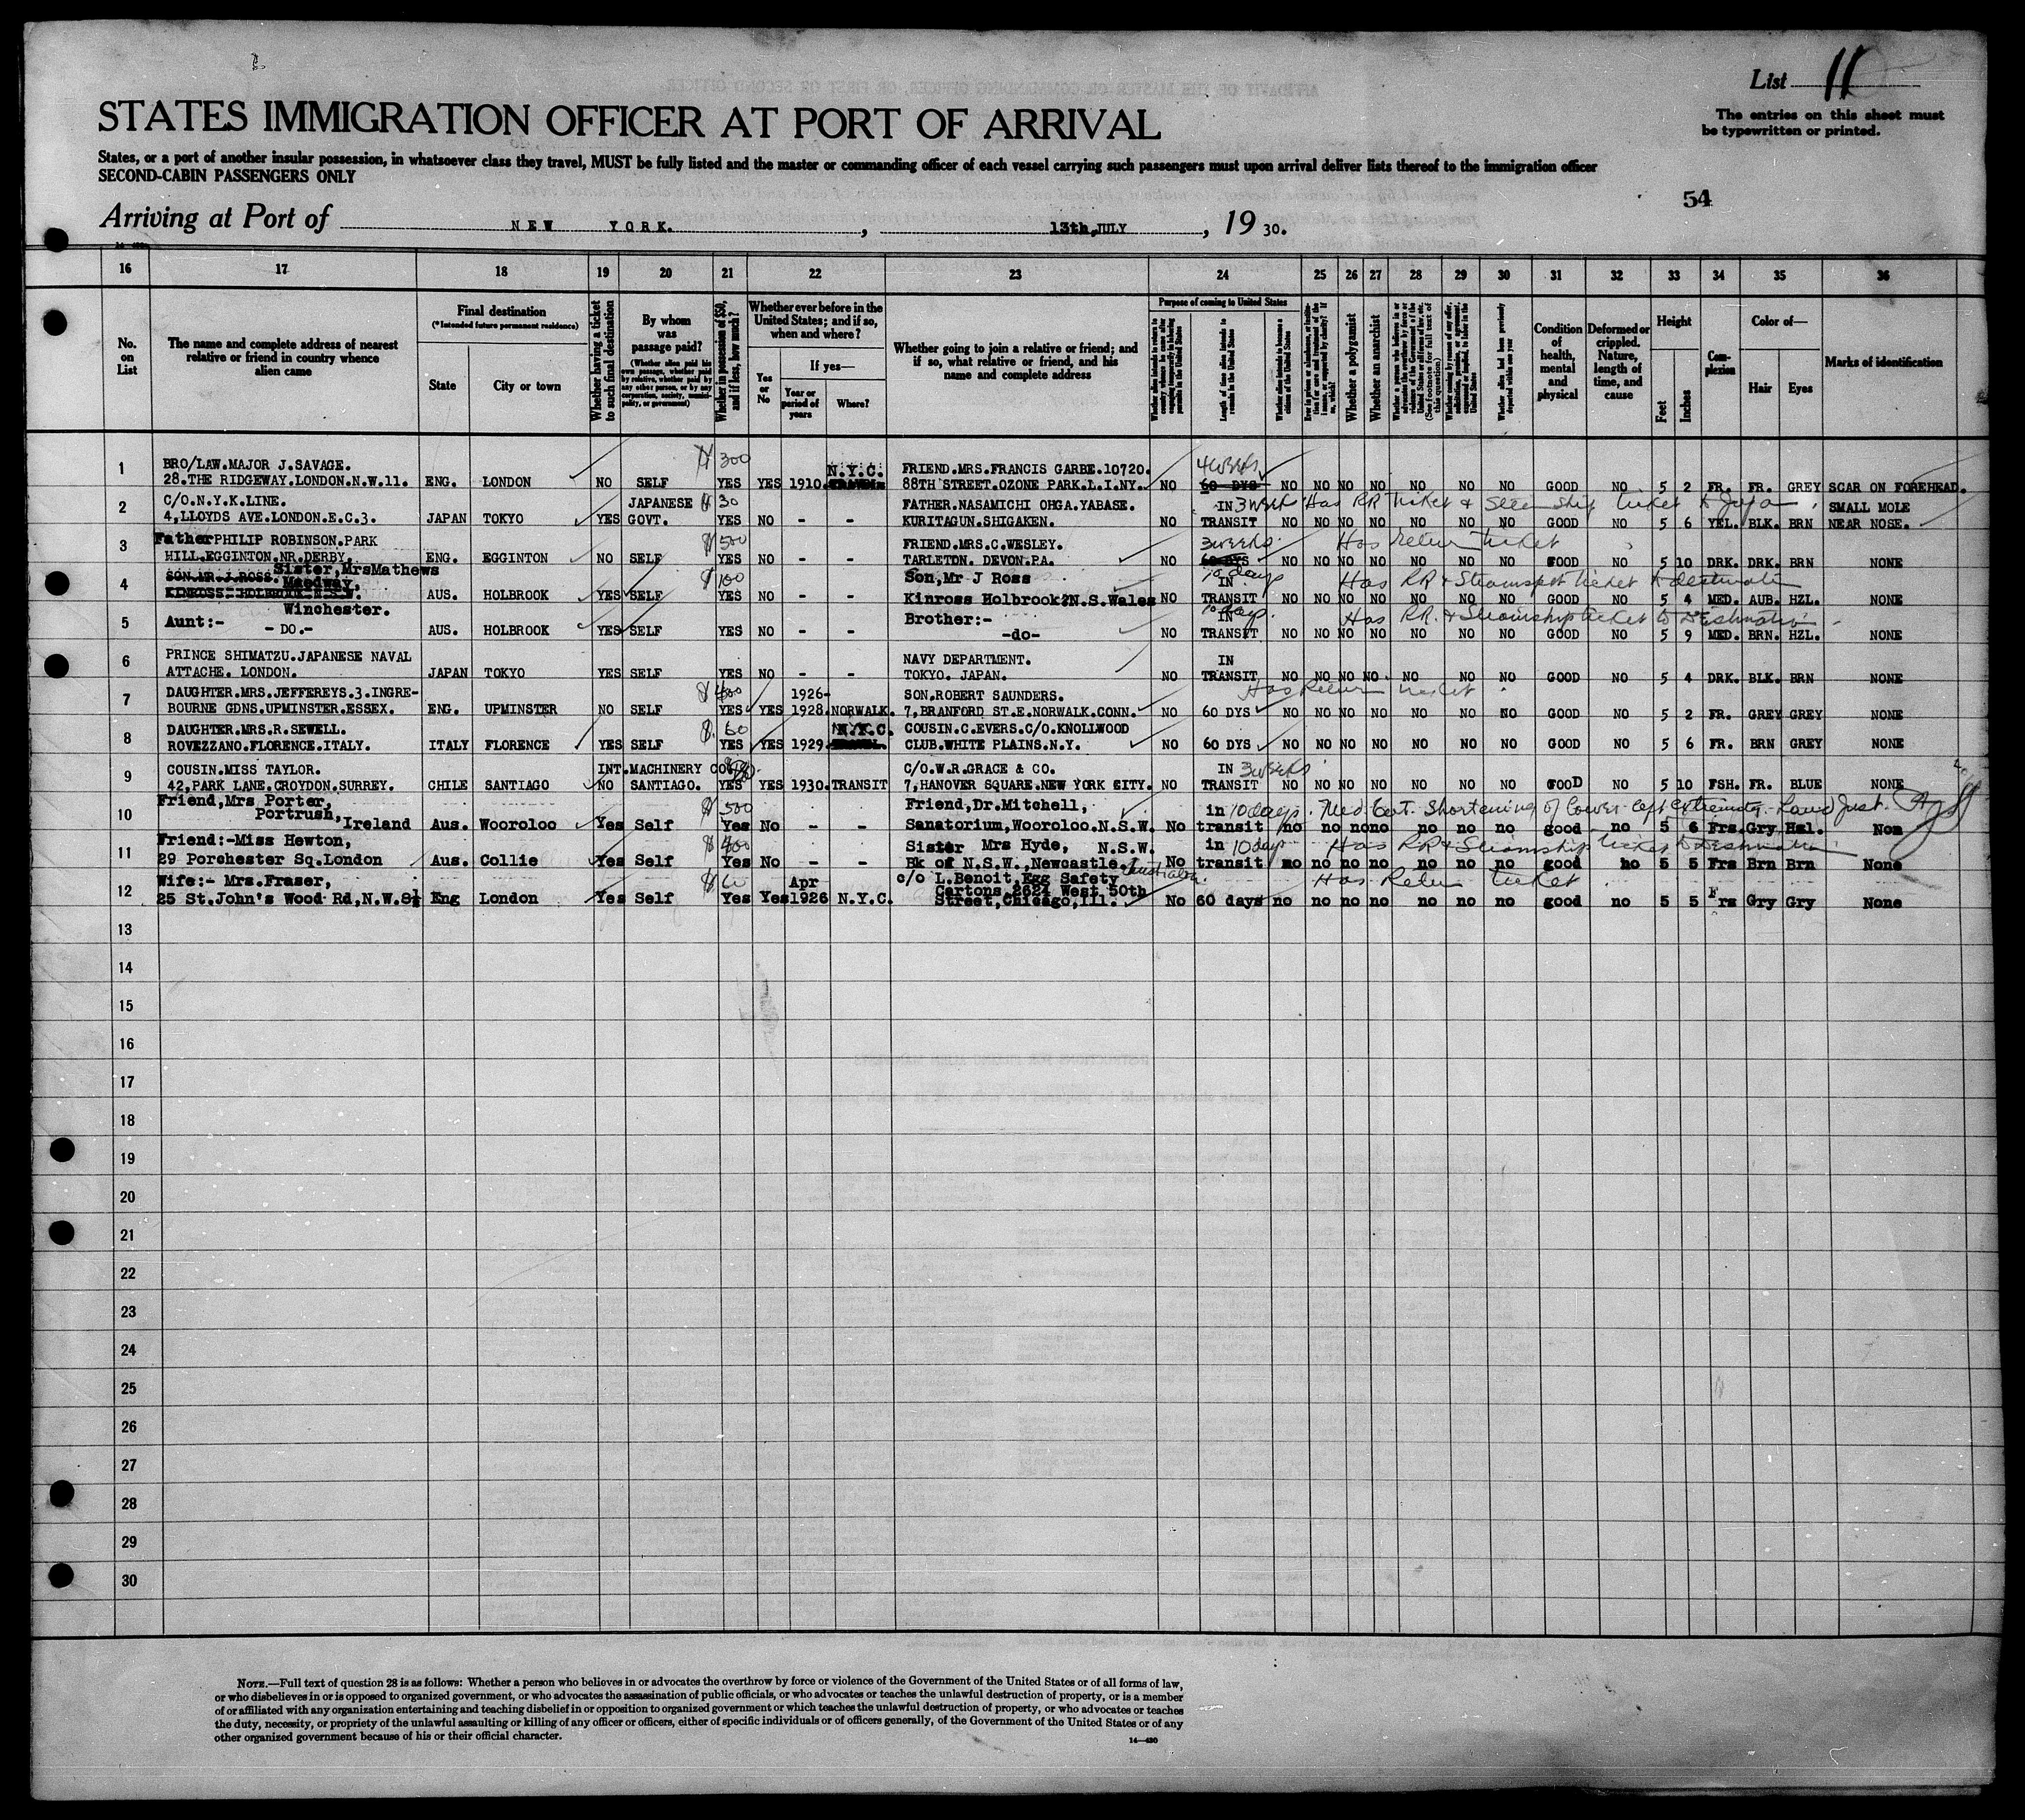 List 11
STATES IMMIGRATION OFFICER AT PORT OF ARRIVAL
The entries on this sheet must
be typewritten or printed.
States, or a port of another insular possession, in whatsoever class they travel, MUST be fully listed and the master or commanding officer of each vessel carrying such passengers must upon arrival deliver lists thereof to the immigration officer
SECOND-CABIN PASSENGERS ONLY
54
Arriving at Port of NEW YORK. , 13th, JULY , 19 30.
16 17 18 19 20 21 22 23 24 25 26 27 28 29 30 31 32 33 34 35 36
No. on List
The name and complete address of nearest relative or friend in country whence alien came
Final destination
(*Intended future permanent residence)
State
City or town
Whether having a ticket to such final destination
By whom was passage paid?
(Whether alien paid his own passage, whether paid by relative, whether paid by any other person, or by any corporation, society, municipality, or government)
Whether in possession of $50, and if less, how much?
Whether ever before in the United States; and if so, when and where?
Yes or No
If yes—
Year or period of years
Where?
Whether going to join a relative or friend; and if so, what relative or friend, and his name and complete address
Purpose of coming to United States
Length of time alien intends to remain in the United States
Whether alien intends to become a citizen of the United States
Whether a polygamist
Whether an anarchist
Condition of health, mental and physical
Deformed or crippled. Nature, length of time, and cause
Height
Feet
Inches
Complexion
Color of—
Hair
Eyes
Marks of identification
1 BRO/LAW.MAJOR J.SAVAGE. $300 N.Y.C. FRIEND.MRS.FRANCIS GARBE.10720. 4 weeks
28.THE RIDGEWAY.LONDON.N.W.11. ENG. LONDON NO SELF YES YES 1910. 88TH STREET.OZONE PARK.L.I.NY. NO 60 DYS NO NO NO NO NO NO NO GOOD NO 5 2 FR. FR. GREY SCAR ON FOREHEAD.
2 C/O.N.Y.K.LINE. JAPANESE $30 FATHER.NASAMICHI OHGA.YABASE. IN 3 week Has RR Ticket & Steam Ship ticket to Japan. SMALL MOLE
4,LLOYDS AVE.LONDON.E.C.3. JAPAN TOKYO YES GOVT. YES NO - - KURITAGUN.SHIGAKEN. NO TRANSIT NO NO NO NO NO NO NO GOOD NO 5 6 YEL. BLK. BRN NEAR NOSE.
3 Father PHILIP ROBINSON.PARK $500 FRIEND.MRS.C.WESLEY. 3 weeks Has return ticket
HILL.EGGINTON.NR.DERBY. ENG. EGGINTON NO SELF YES NO - - TARLETON. DEVON.PA. NO 60 DYS NO NO NO NO NO NO NO GOOD NO 5 10 DRK. DRK. BRN NONE
Sister,MrsMathews
4 SON.MR.J.ROSS. Maedway. $100 Son,Mr J Ross 10 days IN Has RR & Steamship ticket to destination
KINROSS. HOLBROOK N.S.W. AUS. HOLBROOK YES SELF YES NO - - Kinross Holbrook N.S.Wales NO TRANSIT NO NO NO NO NO NO NO GOOD NO 5 4 MED. AUB. HZL. NONE
Winchester.
5 Aunt:- Brother:- 10 days IN Has RR. & Steamship ticket to Destination
- DO.- AUS. HOLBROOK YES SELF YES NO - - -do- NO TRANSIT NO NO NO NO NO NO NO GOOD NO 5 9 MED. BRN. HZL. NONE
6 PRINCE SHIMATZU.JAPANESE NAVAL NAVY DEPARTMENT. IN
ATTACHE. LONDON. JAPAN TOKYO YES SELF YES NO - - TOKYO. JAPAN. NO TRANSIT NO NO NO NO NO NO NO GOOD NO 5 4 DRK. BLK. BRN NONE
7 DAUGHTER.MRS.JEFFEREYS.3.INGRE- $400 1926- SON.ROBERT SAUNDERS. Has Return ticket
BOURNE GDNS.UPMINSTER.ESSEX. ENG. UPMINSTER NO SELF YES YES 1928. NORWALK. 7,BRANFORD ST.E.NORWALK.CONN. NO 60 DYS NO NO NO NO NO NO NO GOOD NO 5 2 FR. GREY GREY NONE
8 DAUGHTER.MRS.R.SEWELL. $60 N.Y.C. COUSIN.C.EVERS.C/O.KNOLLWOOD
ROVEZZANO.FLORENCE.ITALY. ITALY FLORENCE YES SELF YES YES 1929. CLUB.WHITE PLAINS.N.Y. NO 60 DYS NO NO NO NO NO NO NO GOOD NO 5 6 FR. BRN GREY NONE
9 COUSIN.MISS TAYLOR. INT.MACHINERY CO. C/O.W.R.GRACE & CO. IN 3 weeks
42,PARK LANE.CROYDON.SURREY. CHILE SANTIAGO NO SANTIAGO. YES YES 1930. TRANSIT 7,HANOVER SQUARE.NEW YORK CITY. NO TRANSIT NO NO NO NO NO NO NO GOOD NO 5 10 FSH. FR. BLUE NONE
10 Friend,Mrs Porter, $500 Friend,Dr.Mitchell, in 10 days. Med Cert. Shortening of lower left extremity.
Portrush,Ireland Aus. Wooroloo Yes Self Yes No - - Sanatorium,Wooroloo.N.S.W. No transit no no no no no no no good no 5 6 Frs. Gry Hzl. Non
11 Friend:-Miss Hewton, $400 Sister Mrs Hyde, N.S.W. in 10 days Has RR & Steamship ticket to Destination
29 Porchester Sq.London Aus. Collie Yes Self Yes No - - Bk of N.S.W.,Newcastle. Australia. No transit no no no no no no no good no 5 5 Frs Brn Brn None
12 Wife:- Mrs.Fraser, $60 Apr c/o L.Benoit,Egg Safety Has Return ticket
Cartons,2624 West 50th
25 St.John's Wood Rd,N.W.8½ Eng London Yes Self Yes Yes 1926 N.Y.C. Street,Chicago,Ill. No 60 days no no no no no no no good no 5 5 Frs Gry Gry None
13
14
15
16
17
18
19
20
21
22
23
24
25
26
27
28
29
30
NOTE.—Full text of question 28 is as follows: Whether a person who believes in or advocates the overthrow by force or violence of the Government of the United States or of all forms of law,
or who disbelieves in or is opposed to organized government, or who advocates the assassination of public officials, or who advocates or teaches the unlawful destruction of property, or is a member
of or affiliated with any organization entertaining and teaching disbelief in or opposition to organized government or which teaches the unlawful destruction of property, or who advocates or teaches
the duty, necessity, or propriety of the unlawful assaulting or killing of any officer or officers, either of specific individuals or of officers generally, of the Government of the United States or of any
other organized government because of his or their official character.
14—430